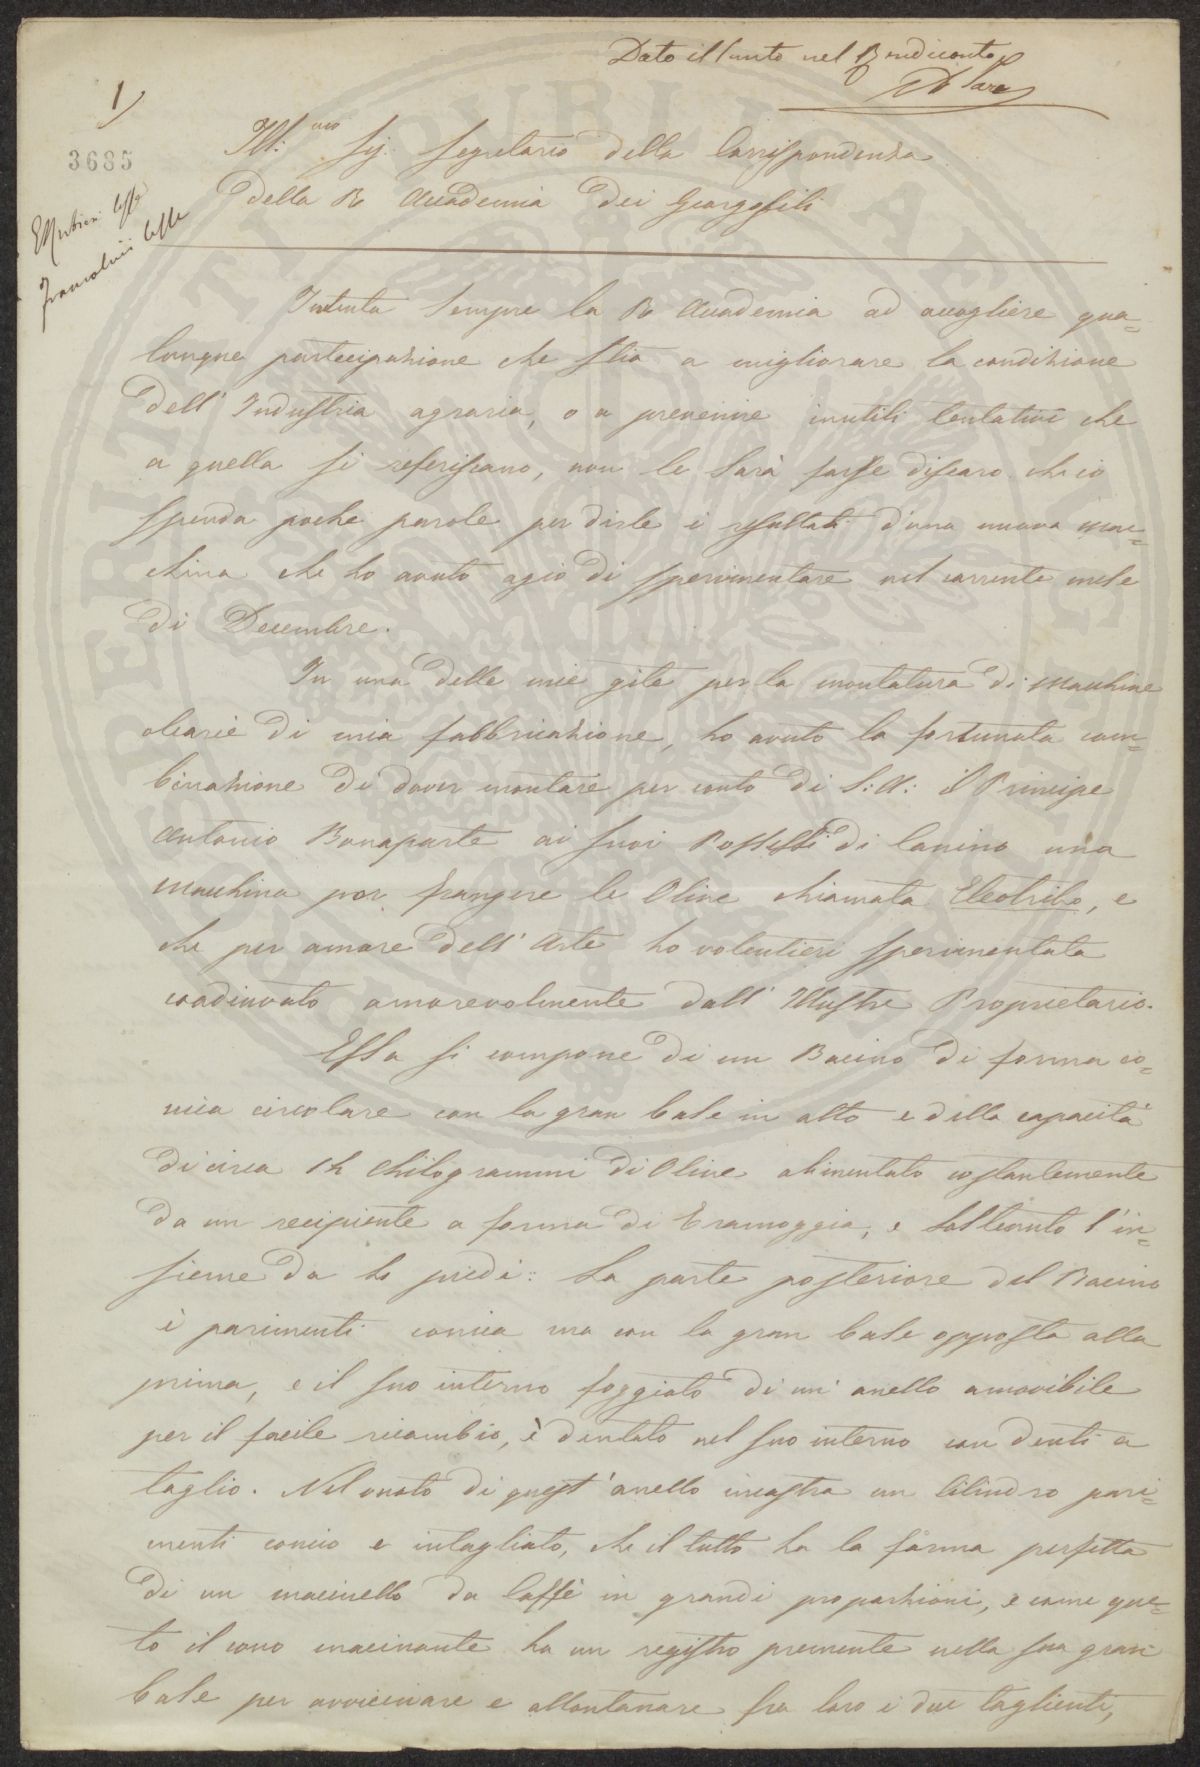 Dato il Sunto nel Rendiconto
1)
3685
Ill:mo Sig. Segretario della Corrispondenza
della R Accademia dei Georgofili
Intenta sempre la R Accademia ad accogliere qua=
lunque partecipazione che stia a migliorare la condizione
dell' Industria agraria, o a prevenire inutili tentativi che
a quella si referiscano, non le sarà forse discaro che io
spenda poche parole per dirle i resultati d'una nuova mac=
china che ho avuto agio di sperimentare nel corrente mese
di Decembre.
In una delle mie gite per la montatura di macchine
olearie di mia fabbricazione, ho avuto la fortunata com=
binazione di dover montare per conto di S: A: il Principe
Antonio Bonaparte ai suoi Possessi di Canino una
macchina per frangere le Olive chiamata Eleotribo, e
che per amore dell' Arte ho volentieri sperimentata
coadiuvato amorevolmente dall' Illustre Proprietario.
Essa si compone di un Bacino di forma co=
nica circolare con la gran base in alto e della capacità
di circa 12 Chilogrammi di Olive alimentato costantemente
da un recipiente a forma di Tramoggia, e sostenuto l'in=
sieme da tre piedi: La parte posteriore del Bacino
è parimenti conica ma con la gran base opposta alla
prima, e il suo interno foggiato di un' anello amovibile
per il facile ricambio, è dentato nel suo interno con denti a
taglio. Nel vuoto di quest' anello incastra un Cilindro pari=
menti conico e intagliato, che il tutto ha la forma perfetta
di un macinello da Caffè in grandi proporzioni, e come que=
sto il cono macinante ha un registro premente nella sua gran
base per avvicinare e allontanare fra loro i due taglienti,